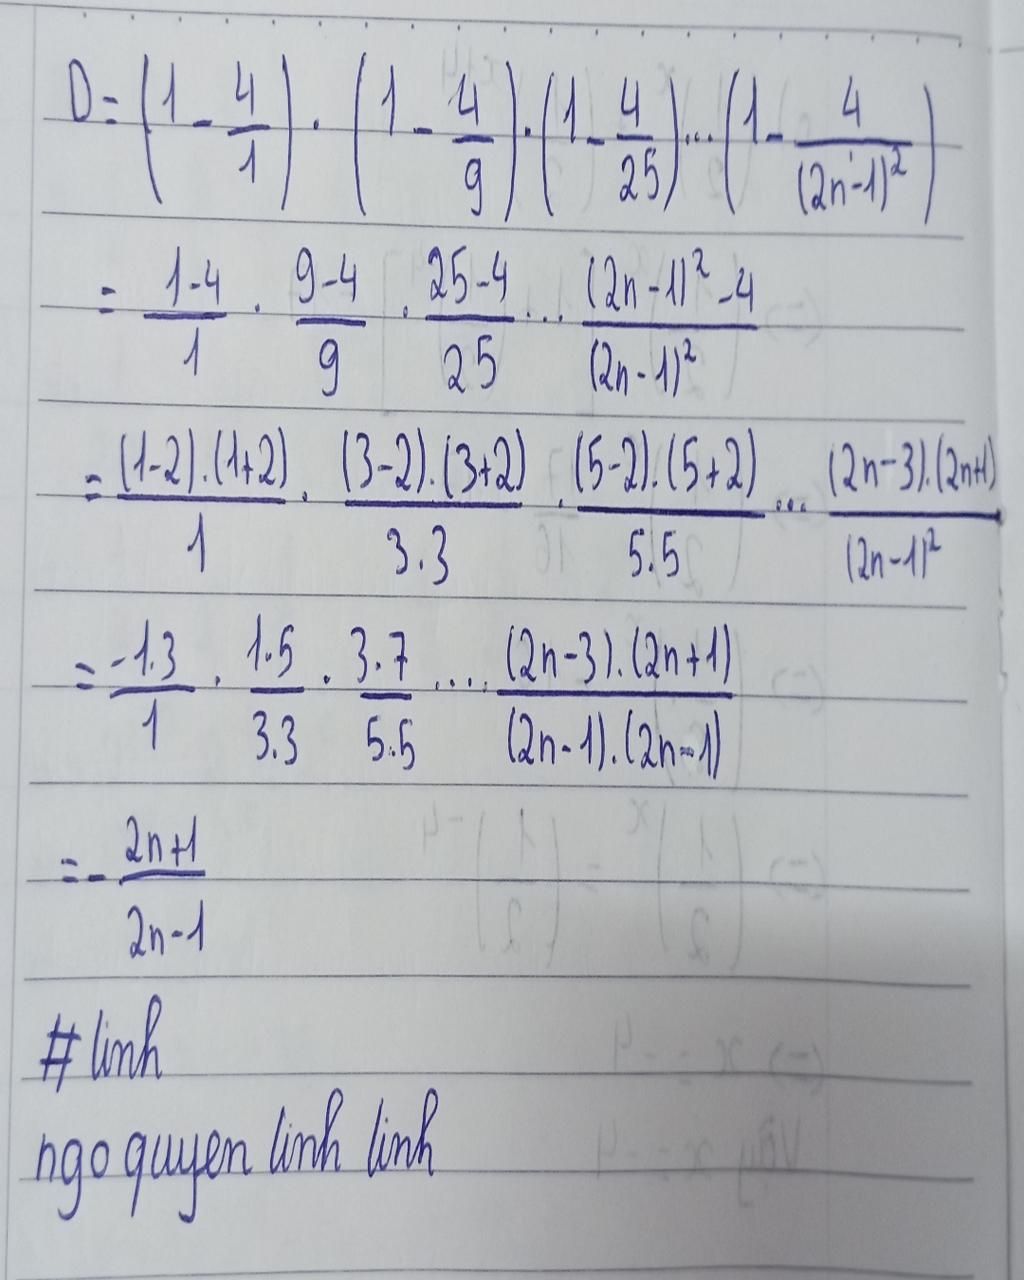 D = (1 - 4/1) . (1 - 4/9) . (1 - 4/25) ... (1 - 4/(2n-1)²)
= (1-4)/1 . (9-4)/9 . (25-4)/25 ... ((2n-1)² -4)/(2n-1)²
= (1-2).(1+2)/1 . (3-2).(3+2)/3.3 . (5-2).(5+2)/5.5 ... (2n-3).(2n+1)/(2n-1)²
= -1.3/1 . 1.5/3.3 . 3.7/5.5 .... (2n-3).(2n+1)/(2n-1).(2n-1)
= - (2n+1)/(2n-1)
# linh
ngo quyen linh linh